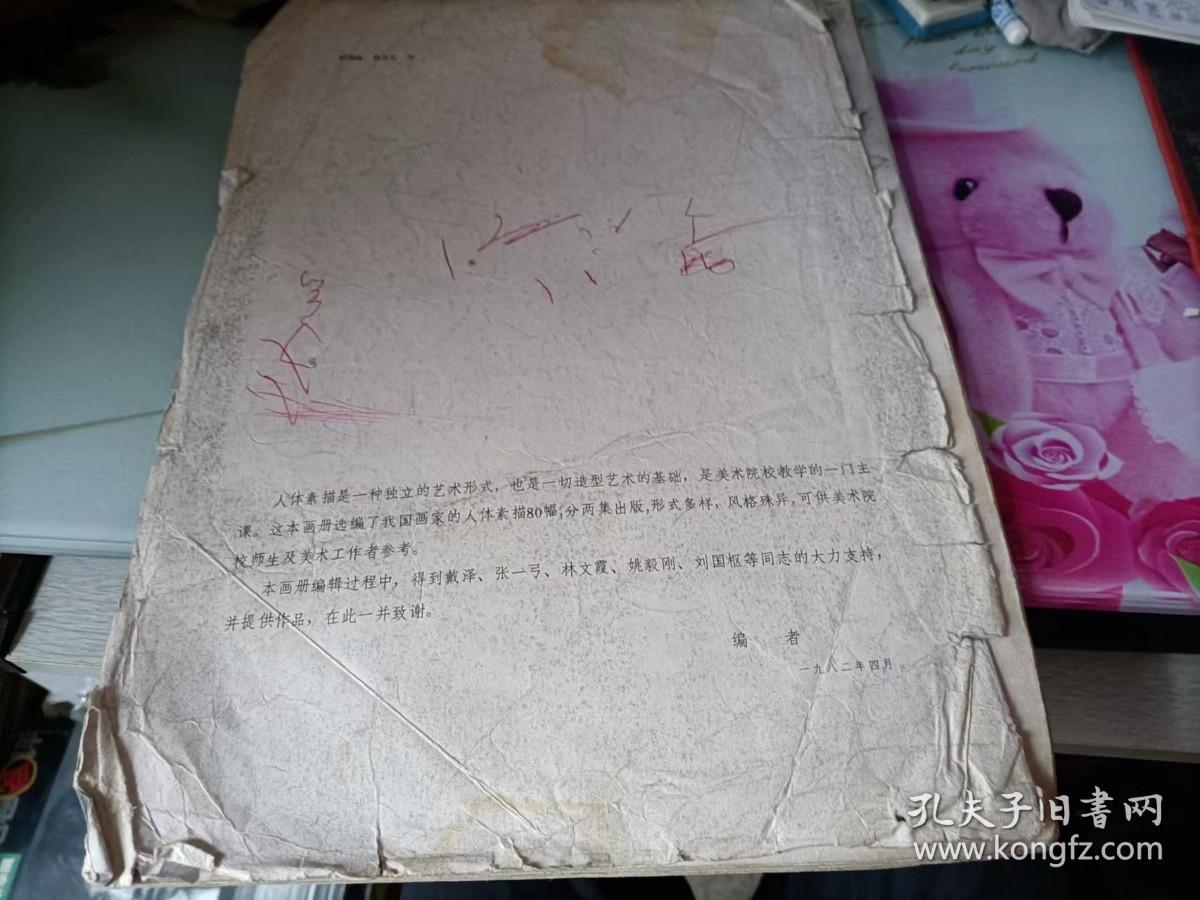 人体素描是一种独立的艺术形式，也是一切造型艺术的基础，是美术院校教学的一门主
课。这本画册选编了我国画家的人体素描80幅，分两集出版，形式多样，风格殊异，可供美术院
校师生及美术工作者参考。
本画册编辑过程中，得到戴泽、张一弓、林文霞、姚毅刚、刘国枢等同志的大力支持，
并提供作品，在此一并致谢。
编 者
一九八二年四月
孔夫子旧书网
www.kongfz.com